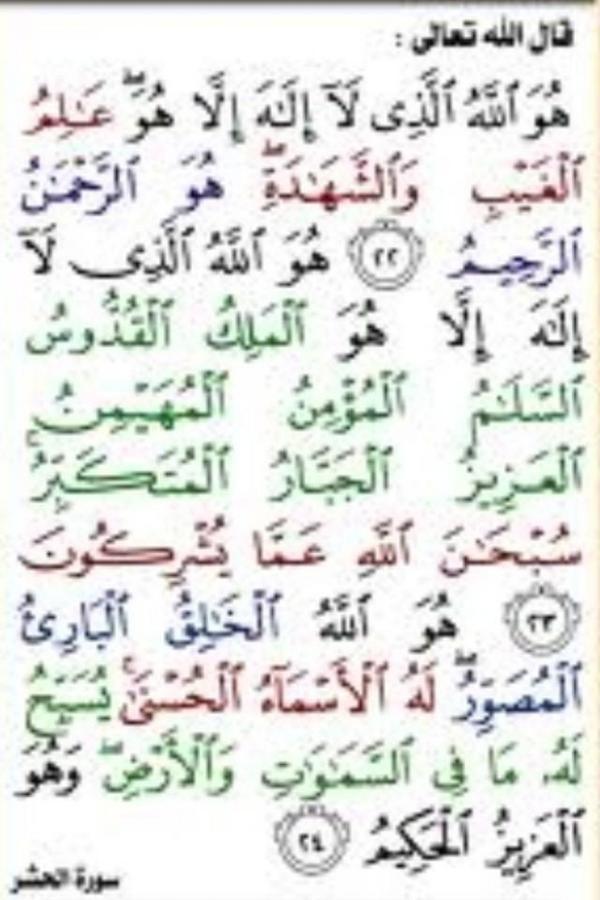 قال الله تعالى :
هُوَ ٱللَّهُ ٱلَّذِى لَآ إِلَـٰهَ إِلَّا هُوَ ۖ عَـٰلِمُ
ٱلْغَيْبِ وَٱلشَّهَـٰدَةِ ۖ هُوَ ٱلرَّحْمَـٰنُ
ٱلرَّحِيمُ ٢٢ هُوَ ٱللَّهُ ٱلَّذِى لَآ
إِلَـٰهَ إِلَّا هُوَ ٱلْمَلِكُ ٱلْقُدُّوسُ
ٱلسَّلَـٰمُ ٱلْمُؤْمِنُ ٱلْمُهَيْمِنُ
ٱلْعَزِيزُ ٱلْجَبَّارُ ٱلْمُتَكَبِّرُ ۚ
سُبْحَـٰنَ ٱللَّهِ عَمَّا يُشْرِكُونَ
٢٣ هُوَ ٱللَّهُ ٱلْخَـٰلِقُ ٱلْبَارِئُ
ٱلْمُصَوِّرُ ۖ لَهُ ٱلْأَسْمَآءُ ٱلْحُسْنَىٰ ۚ يُسَبِّحُ
لَهُۥ مَا فِى ٱلسَّمَـٰوَٰتِ وَٱلْأَرْضِ ۖ وَهُوَ
ٱلْعَزِيزُ ٱلْحَكِيمُ ٢٤
سورة الحشر